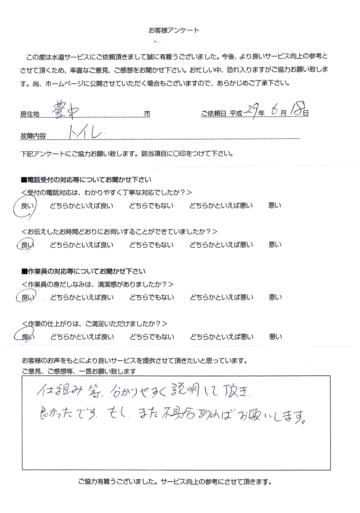 お客様アンケート
この度は水道サービスにご依頼頂きまして誠に有難うございました。今後、より良いサービス向上の参考と
させて頂くため、率直なご意見、ご感想をお聞かせ下さい。お忙しい中、恐れ入りますがご協力お願い致しま
す。尚、ホームページに公開させていただく場合もございますので、あらかじめご了承下さい。
居住地 豊中 市 ご依頼日 平成 29年 6月 18日
故障内容 トイレ
下記アンケートにご協力お願い致します。該当項目に〇印をつけて下さい。
■電話受付の対応等についてお聞かせ下さい
<受付の電話対応は、わかりやすく丁寧な対応でしたか？>
良い どちらかといえば良い どちらでもない どちらかといえば悪い 悪い
<お伝えしたお時間どおりにお伺いすることができていましたか？>
良い どちらかといえば良い どちらでもない どちらかといえば悪い 悪い
■作業員の対応等についてお聞かせ下さい
<作業員の身だしなみは、清潔感がありましたか？>
良い どちらかといえば良い どちらでもない どちらかといえば悪い 悪い
<作業の仕上がりは、ご満足いただけましたか？>
良い どちらかといえば良い どちらでもない どちらかといえば悪い 悪い
お客様のお声をもとにより良いサービスを提供させて頂きたいと思っています。
ご意見、ご感想等、一言お願い致します
仕組み等、分かりやすく説明して頂き、
良かったです。もし、また不具合あればお願いします。
ご協力有難うございました。サービス向上の参考にさせて頂きます。